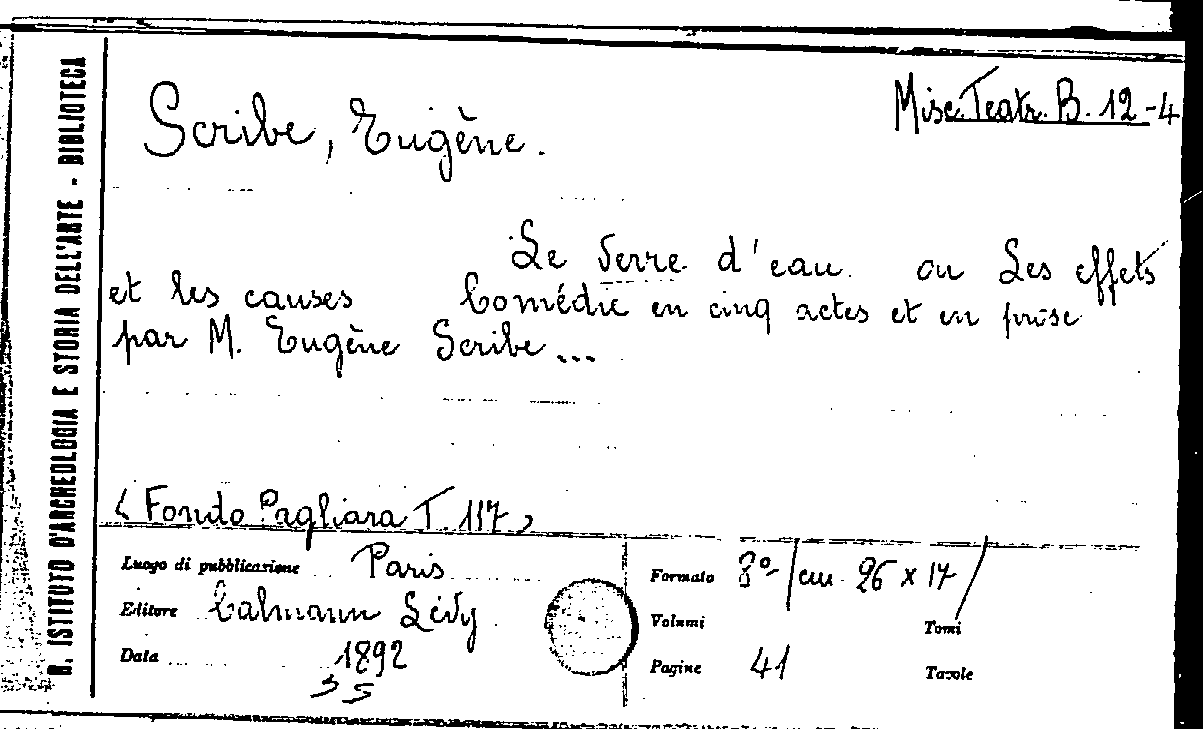 R. ISTITUTO D'ARCHEOLOGIA E STORIA DELL'ARTE - BIBLIOTECA
Misc. Teatr. B. 12-4
Scribe, Eugène.
Le Verre d'eau. ou Les effets
et les causes Comédie en cinq actes et en prose
par M. Eugène Scribe...
(Fondo Pagliara T. 117)
Luogo di pubblicazione Paris
Editore Calmann Lévy
Data 1892
35
Formato 8° /cm. 26 x 17/
Volumi
Tomi
Pagine 41
Tavole